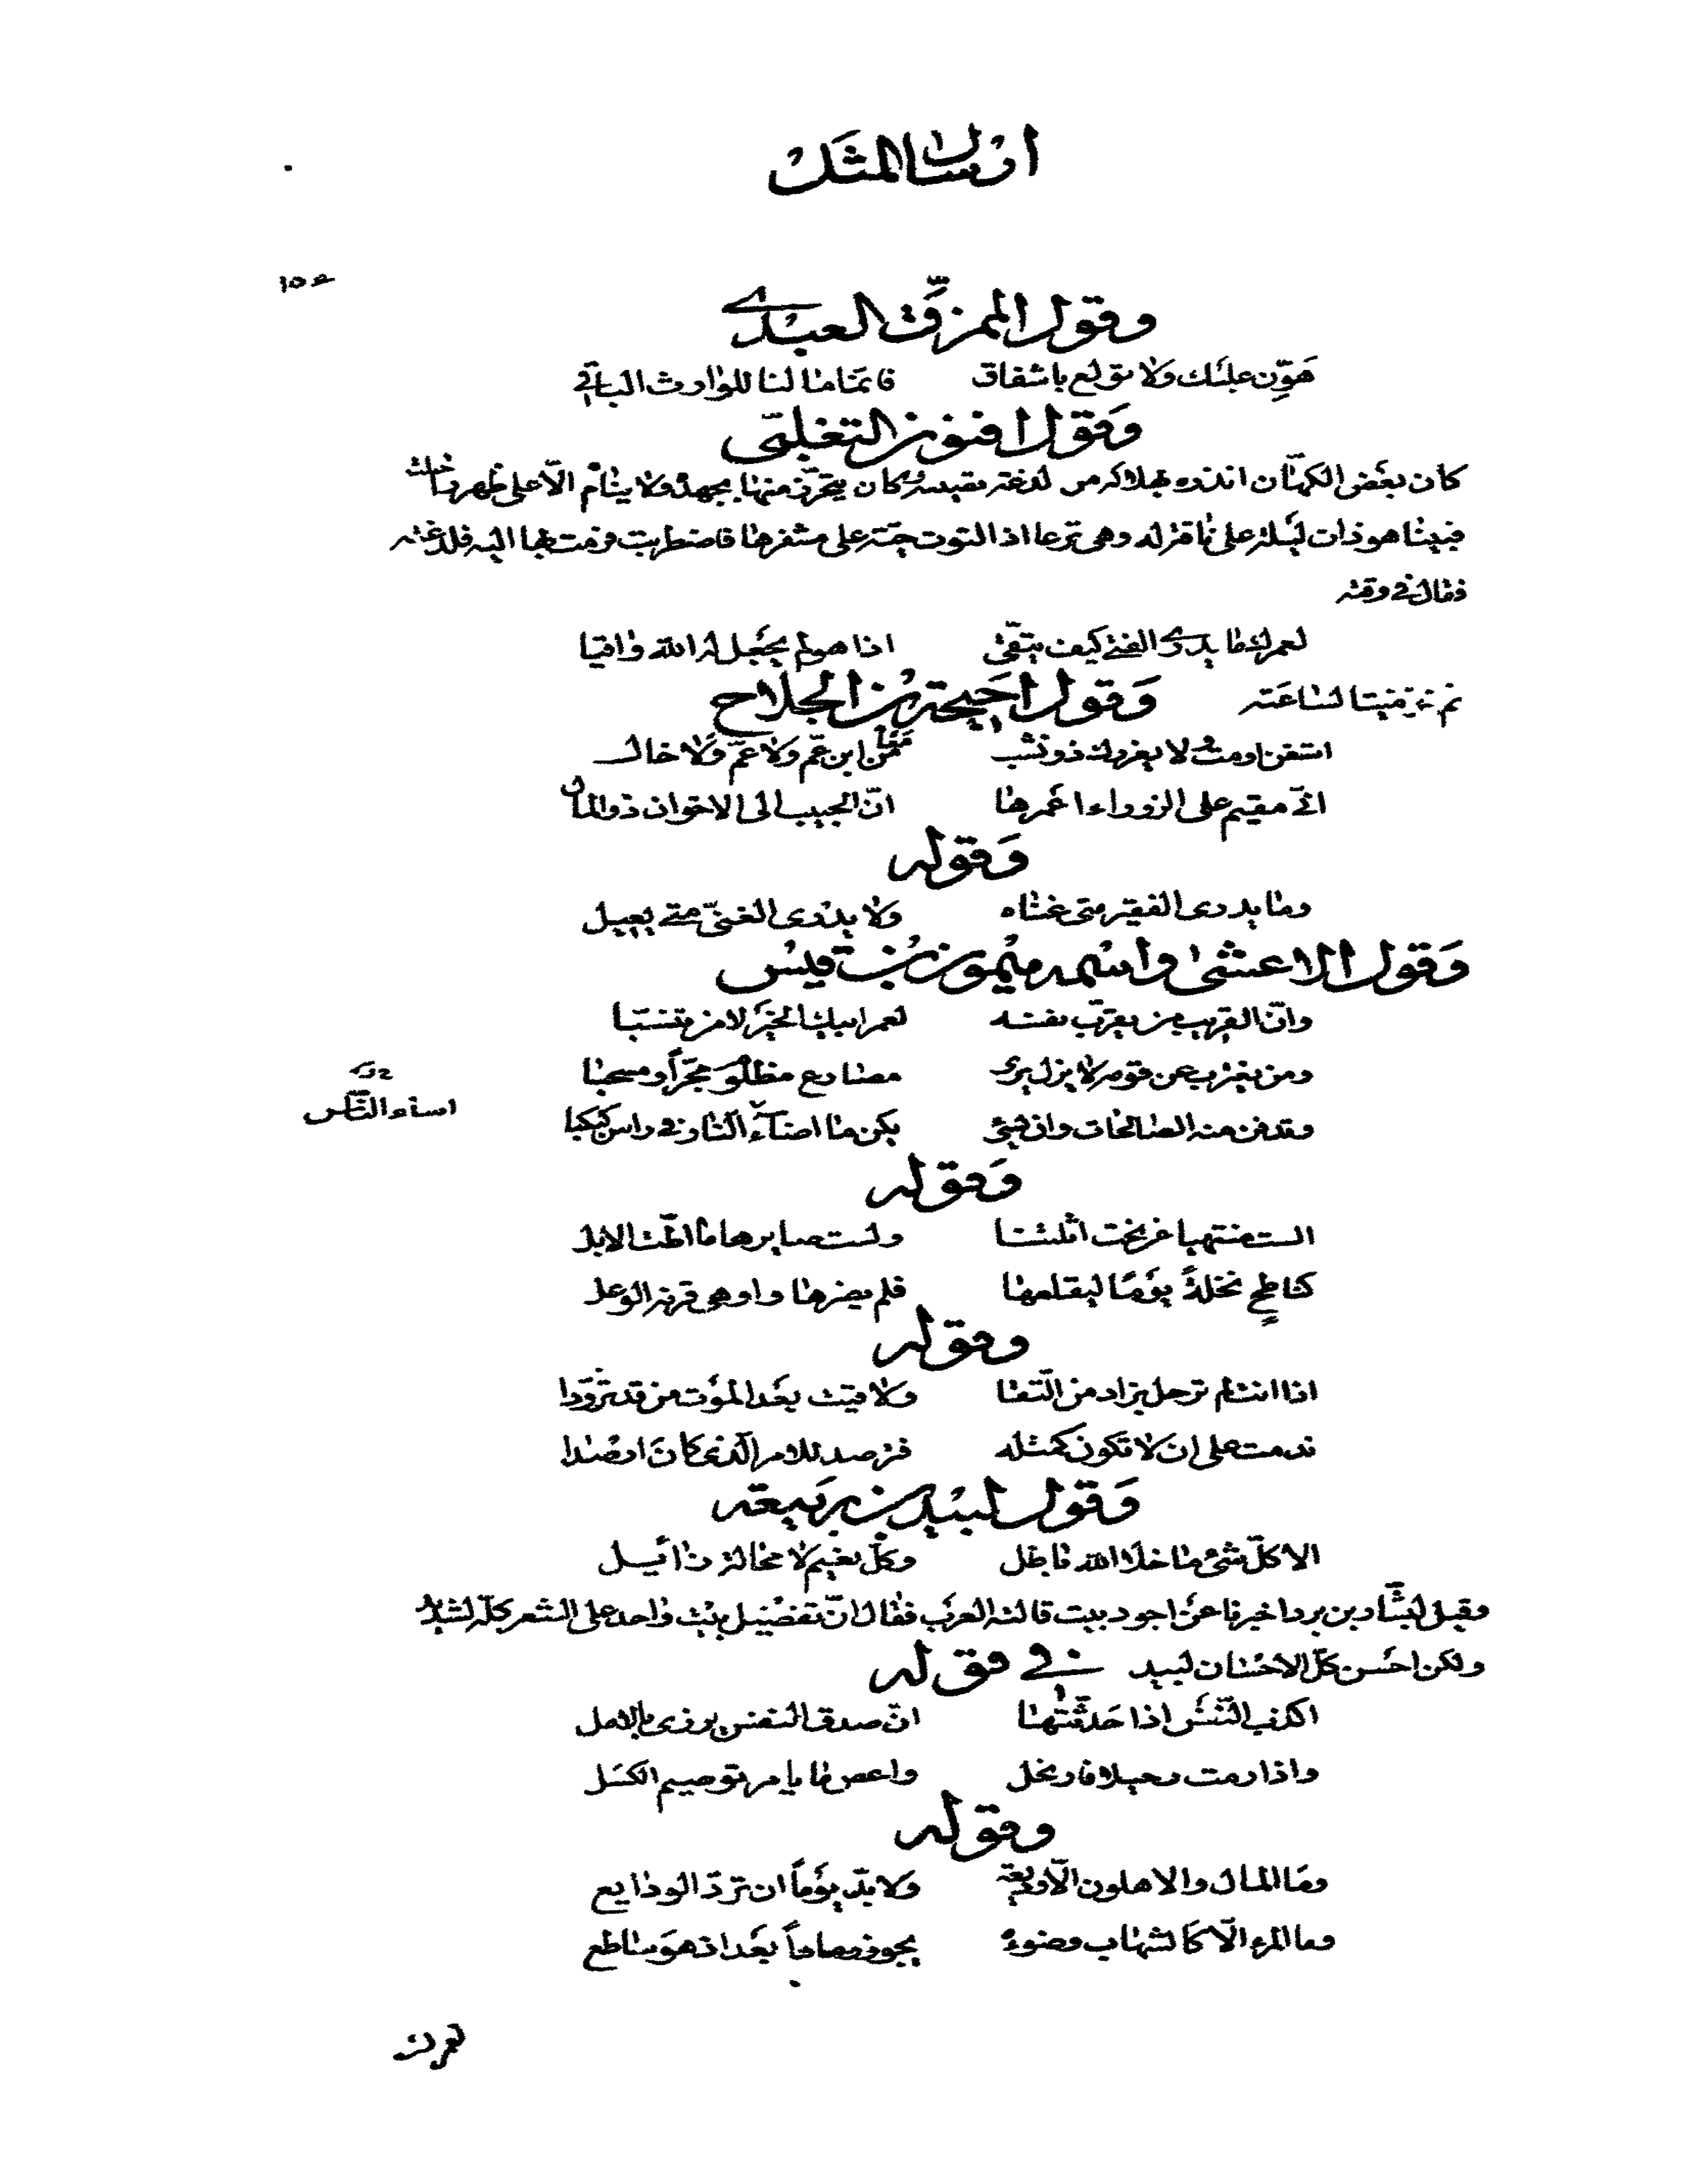 ارسال المثل
وقول الممزق العبدي
هوّن عليك ولا تولع باشفاق فانما مالنا للوارث الباقي
وقول افنون التغلبي
كان بعض الكهان انذره بهلاكه من لدغة كان يتحرّز منها بجهده ولا ينام الّا على ظهر
فبينا هو ذات ليلة على ناقة له وهى ترعا اذا التوت حيّة على مشفرها فاضطربت فرمت بها اليه فلدغته
فقال فى وقته
لعمرك ما يدرى الفتى كيف يتّقى اذا هو لم يجعل له الله واقيا
ثم ميتا لساعته وقول احيحة بن الجلاح
استغن او مت ولا يغررك ذو نشب من ابن عمّ ولا عمّ ولا خال
انّى مقيم على الزوراء اعمرها انّ الحبيب الى الاخوان ذو المال
وقوله
وما يدرى الفقير متى غناه ولا يدرى الغنىّ متى يعيل
وقول الاعشى واسمه ميمون بن قيس
وانّ القريب من يقرّب نفسه لعمر ابيك الخير لا من تنسّبا
ومن يغترب عن قومه لا يزل يرى مصارع مظلوم مجرّاً ومسحبا
وتدفن منه الصالحات وان يسئ يكن ما اساء النار فى راس كبكبا
اساء النّاس
وقوله
الست منتهيا عن نحت اثلتنا ولست ضايرها ما اطّت الابل
كناطح نخلةً يوماً ليقلعها فلم يضرها واوهى قرنه الوعل
وقوله
اذا انت لم ترحل بزاد من التّقا ولاقيت بعد الموت من قد تزوّدا
ندمت على ان لا تكون كمثله فترصد للامر الّذى كان ارصدا
وقول لبيد بن ربيعة
الا كلّ شئ ما خلا الله باطل وكلّ نعيم لا محالة زائيل
وقيل لبشّار بن برد اخبرنا عن اجود بيت قالته العرب فقال انّ تفضيل بيت واحد على الشعر كلّه لشديد
ولكن احسن كلّ الاحسان لبيد فى قوله
اكذب النّفس اذا حدّثتها انّ صدق النفس يزرى بالامل
واذا رمت رحيلا فارتحل واعص ما يامر توصيم الكسل
وقوله
وما المال والاهلون الّا وديعة ولا بدّ يوماً ان تردّ الودايع
وما المرء الّا كالشهاب وضوءه يحور رماداً بعد اذ هو ساطع